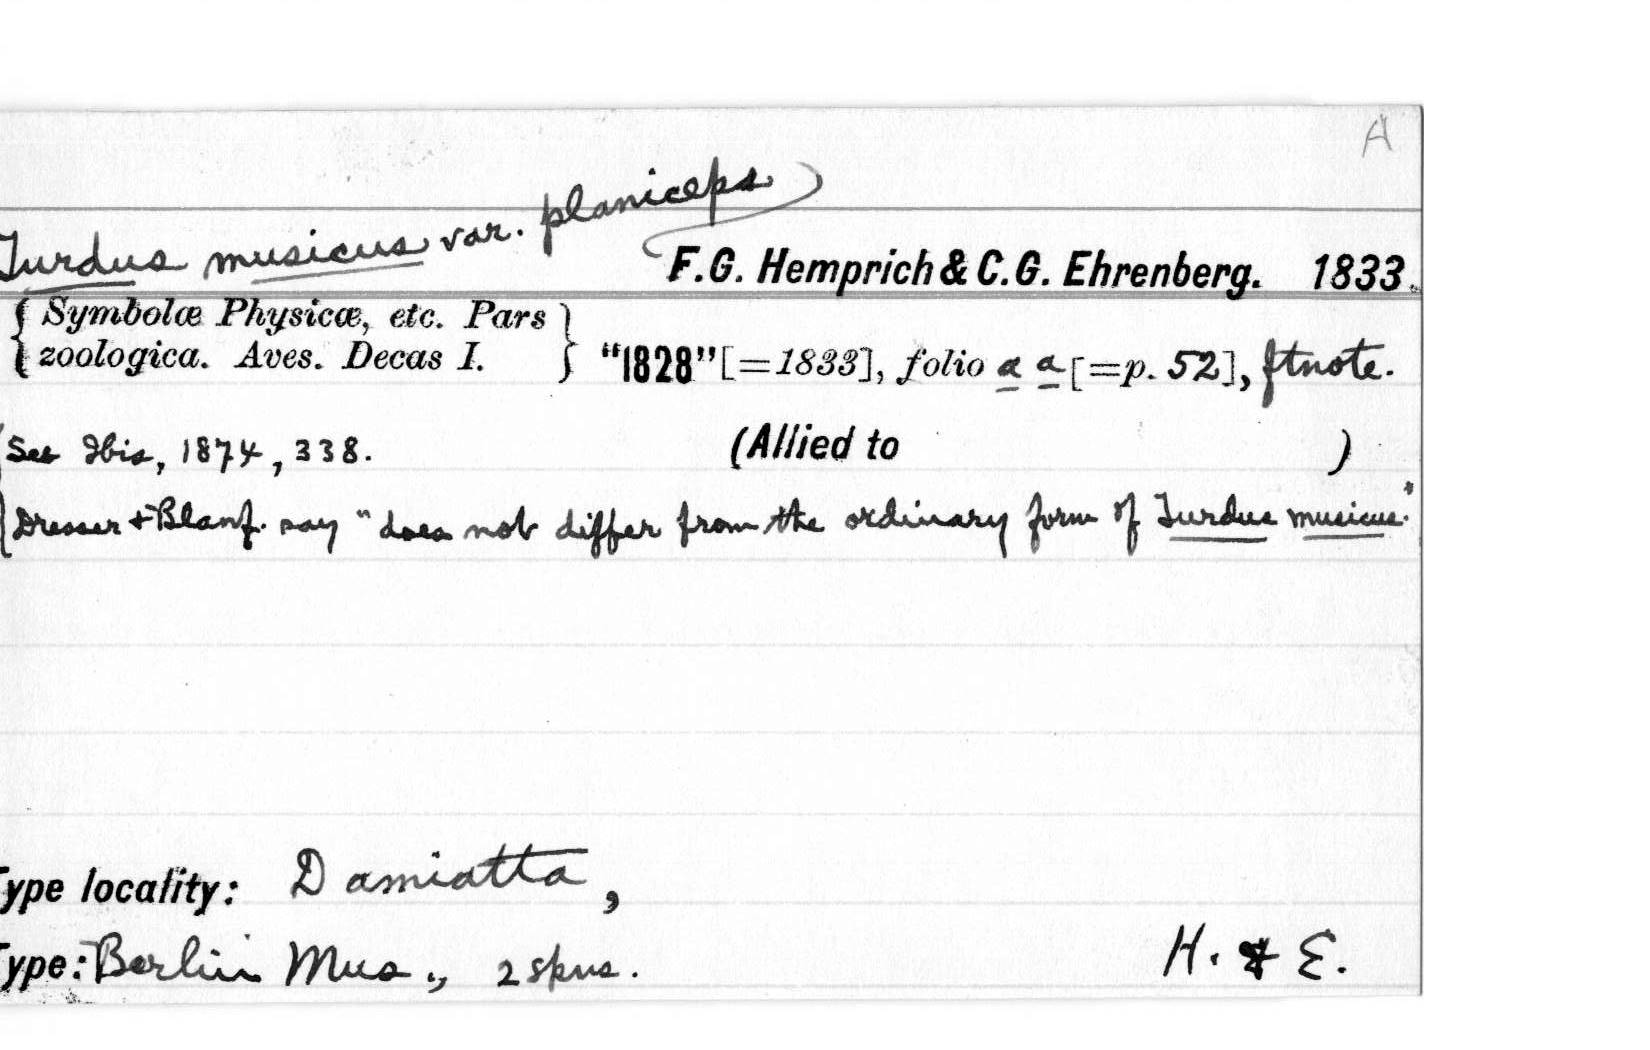 A
Turdus musicus var. planiceps
F.G. Hemprich & C.G. Ehrenberg. 1833.
Symbolæ Physicæ, etc. Pars
zoologica. Aves. Decas I. "1828" [=1833], folio a a [=p. 52], ftnote.
See Ibis, 1874, 338. (Allied to )
Dresser + Blanf. say "does not differ from the ordinary form of Turdus musicus."
Type locality: Damiatta,
Type: Berlin Mus., 2 spns. H. & E.